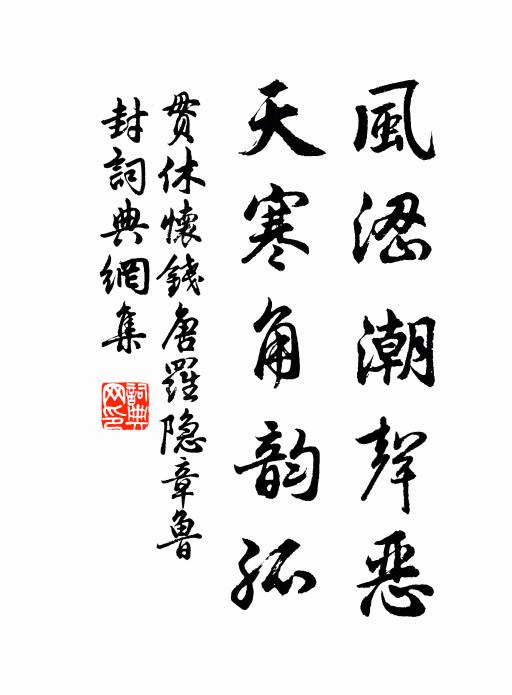 風澀潮聲惡
天寒角韵孤
貫休懷錢唐羅隐章魯
封詞典網集
詞典
网印